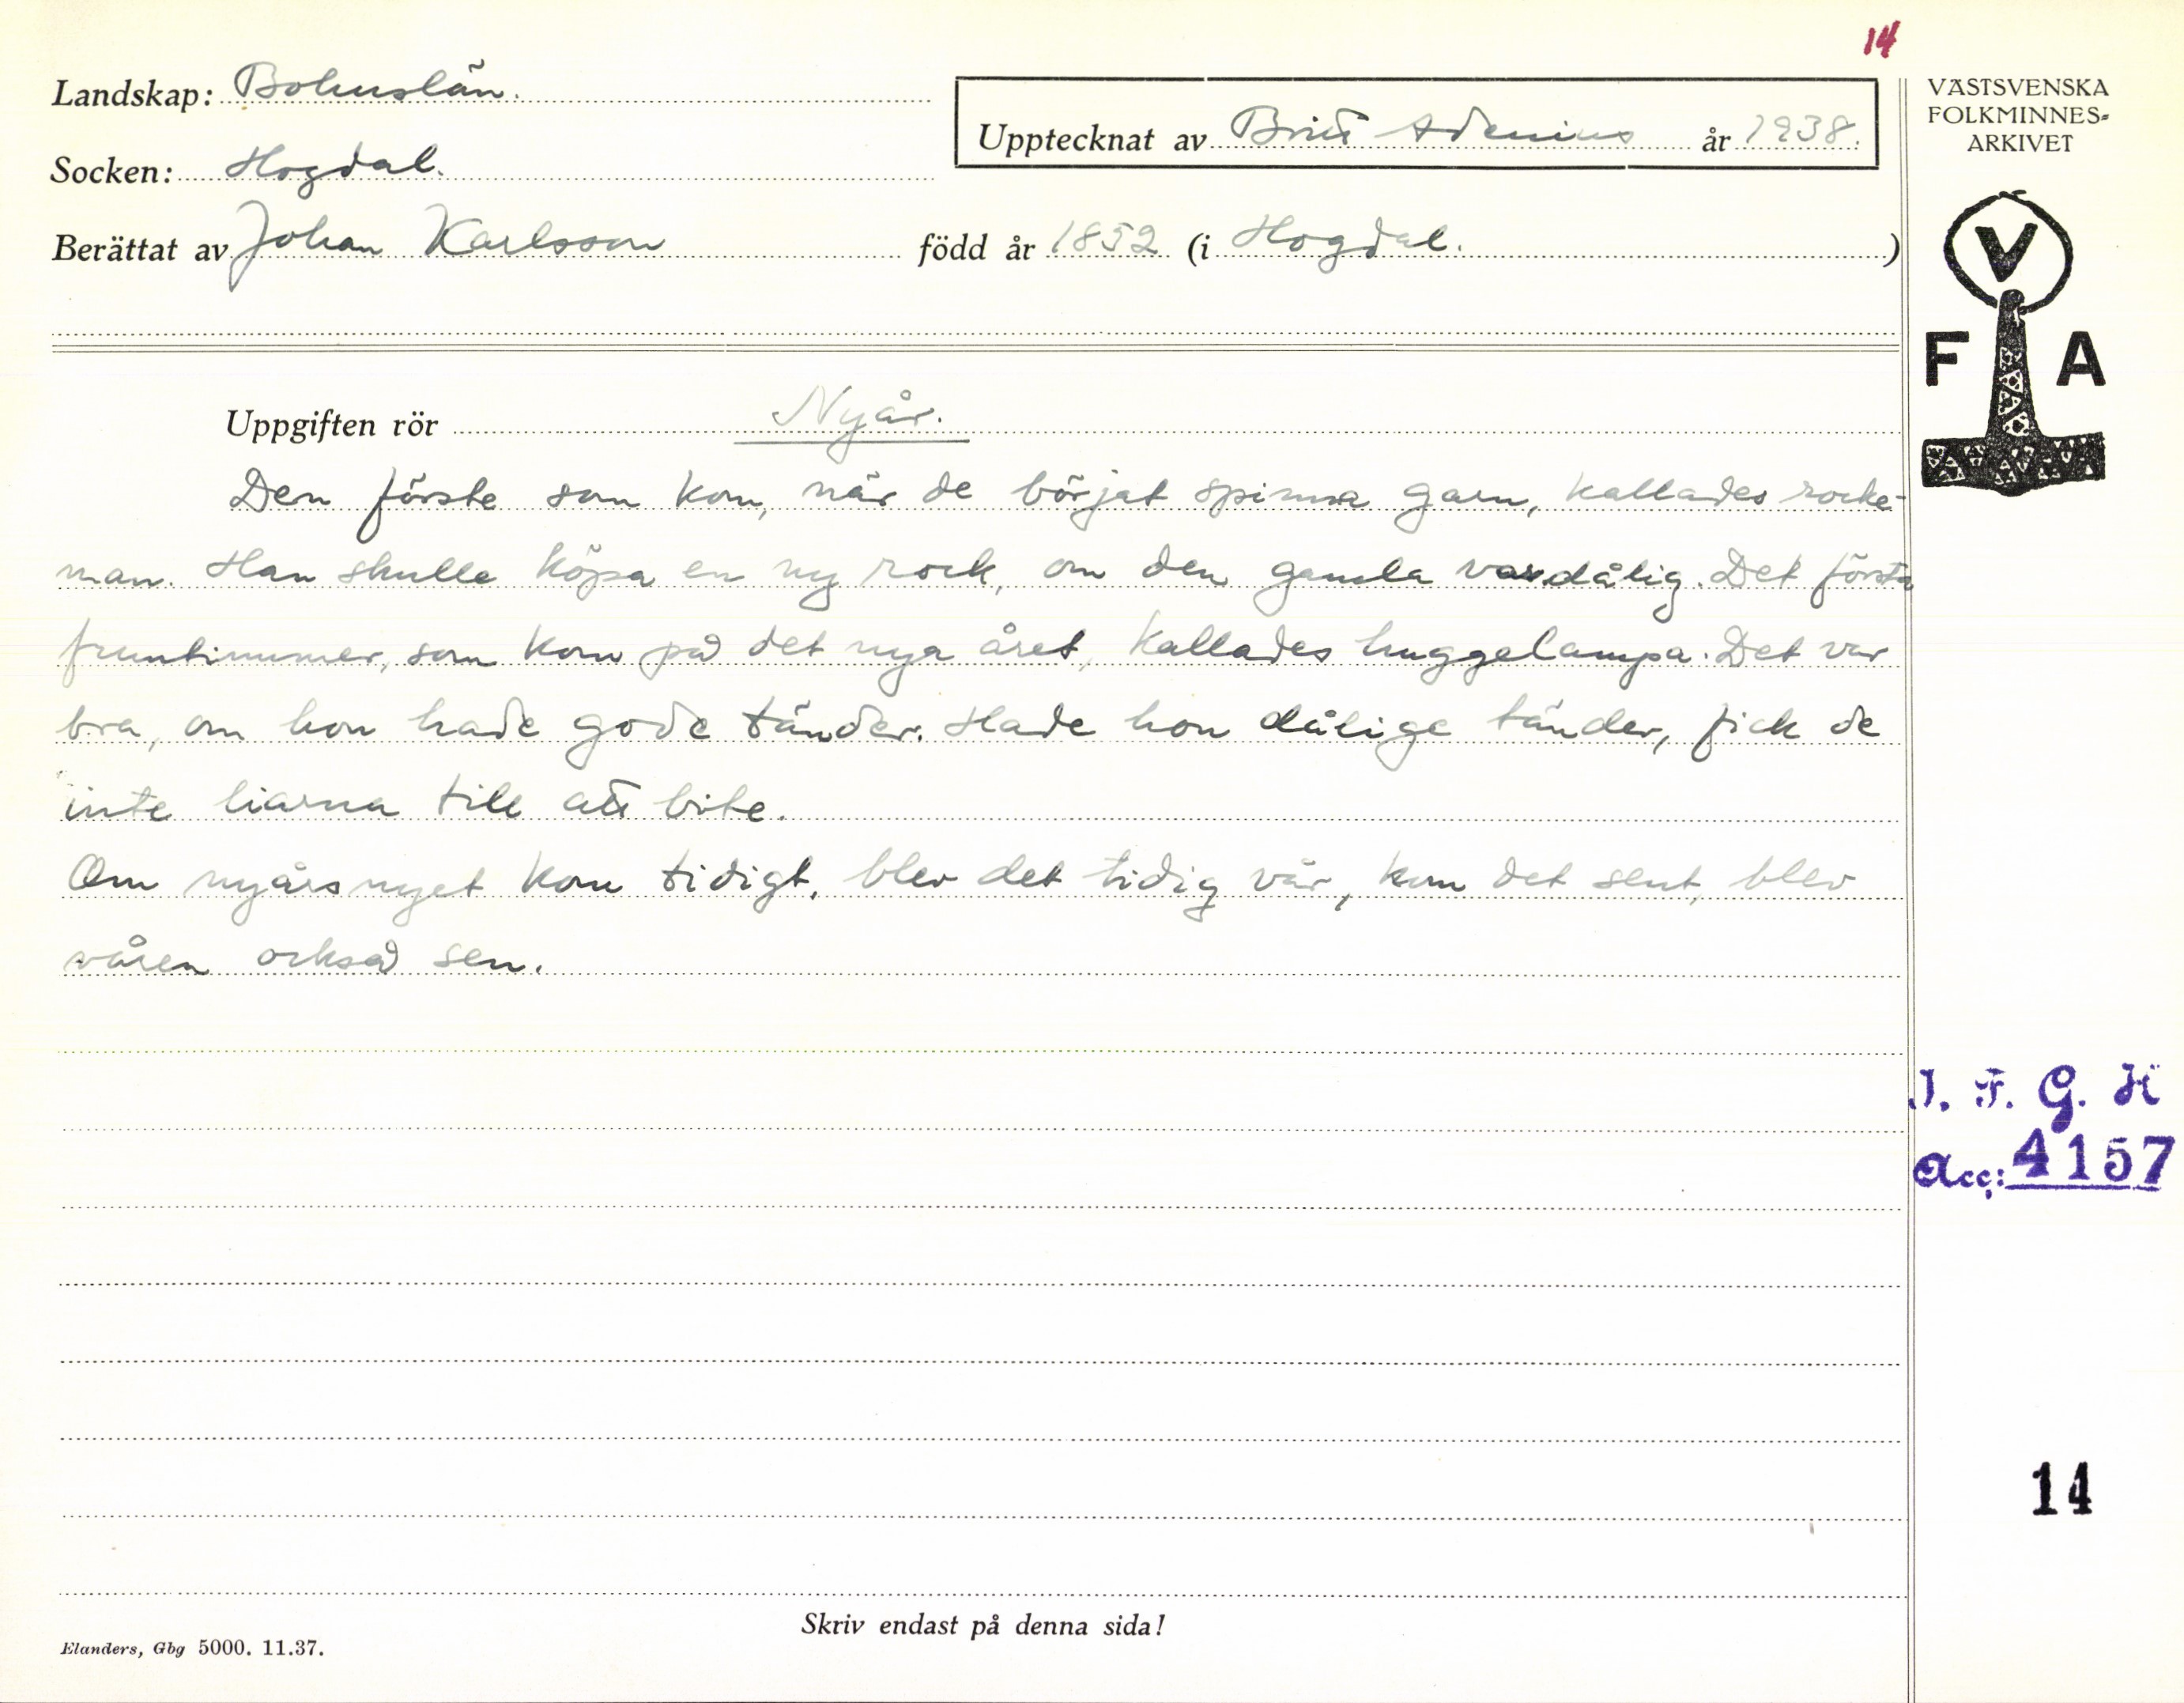 14
Landskap: Bohuslän.
Upptecknat av Britt Adenius år 1938.
Socken: Hogdal.
Berättat av Johan Karlsson född år 1852 (i Hogdal. )
VÄSTSVENSKA
FOLKMINNES-
ARKIVET
V
F A
Uppgiften rör Nyår.
Den förste som kom, när de börjat spinna garn, kallades rocke-
man. Han skulle köpa en ny rock, om den gamla var dålig. Det första
fruntimmer, som kom på det nya året, kallades huggelampa. Det var
bra, om hon hade gode tänder. Hade hon dålige tänder, fick de
inte liarna till att bite.
Om nyårsnyet kom tidigt, blev det tidig vår, kom det sent, blev
våren också sen.
I. F. G. H
Acc: 4157
14
Skriv endast på denna sida!
Elanders, Gbg 5000. 11.37.